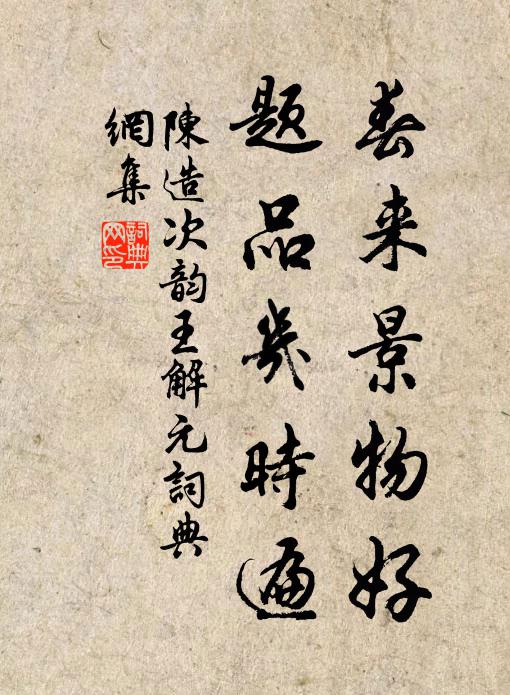 春来景物好
題品幾時遍
陳造次韵王解元詞典
網集
詞典网印